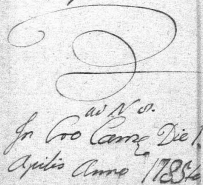 ad N 8.
In Cvo Camz Die 1.
Apilis Anno 1785